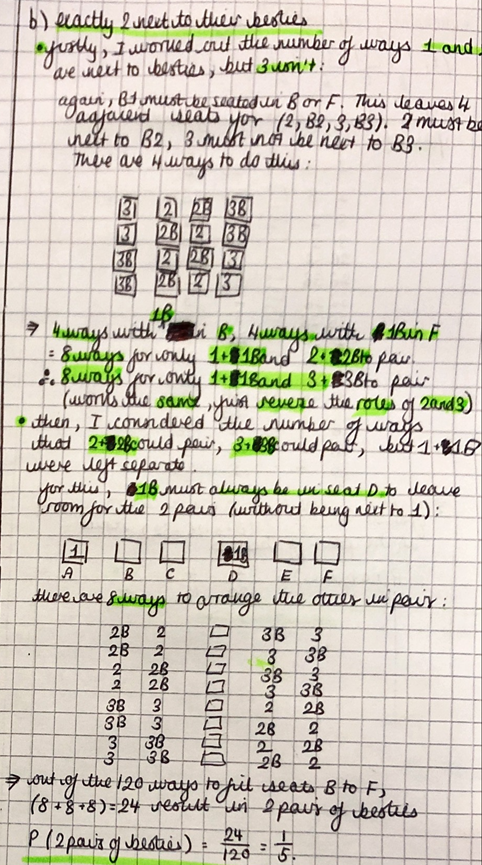 b) exactly 2 next to their besties
• firstly, I worked out the number of ways 1 and
are next to besties, but 3 isn't:
again, B1 must be seated in B or F. This leaves 4
adjacent seats for (2, B2, 3, B3). 2 must be
next to B2, 3 must not be next to B3.
There are 4 ways to do this:
3 2 2B 3B
3 2B 2 3B
3B 2 2B 3
3B 2B 2 3
1B
⇒ 4 ways with in B, 4 ways with 1B in F
= 8 ways for only 1+1B and 2+2B to pair.
∴ 8 ways for only 1+1B and 3+3B to pair
(works the same, just reverse the roles of 2 and 3)
• then, I considered the number of ways
that 2+2B could pair, 3+3B could pair, but 1+1B
were left separate.
for this, 1B must always be in seat D to leave
room for the 2 pairs (without being next to 1):
1 1B
A B C D E F
there are 8 ways to arrange the other in pair:
2B 2 3B 3
2B 2 3 3B
2 2B 3B 3
2 2B 3 3B
3B 3 2 2B
3B 3 2B 2
3 3B 2 2B
3 3B 2B 2
⇒ out of the 120 ways to fill seats B to F,
(8+8+8)=24 result in 2 pairs of besties
P (2 pairs of besties) = 24/120 = 1/5.